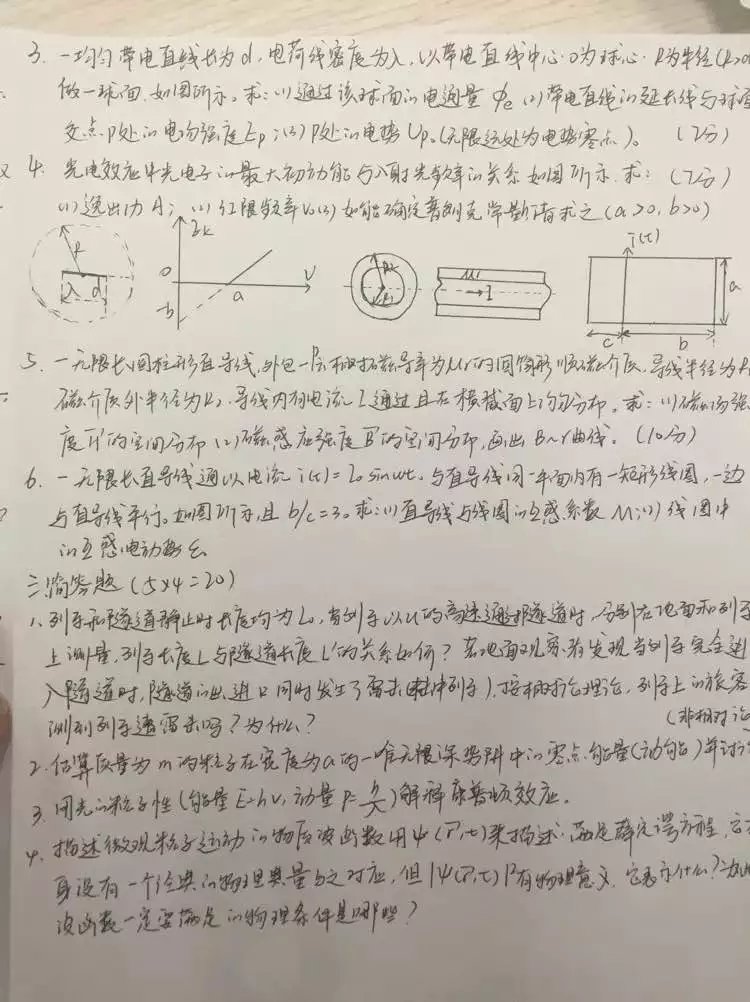 3. 一均匀带电直线长为d,电荷线密度为λ,以带电直线中心O为球心,R为半径(R>d
做一球面,如图所示。求:(1)通过该球面的电通量Φe (2)带电直线的延长线与球面
交点P处的电场强度Ep;(3)P处的电势Up。(无限远处为电势零点)。(12分)
4. 光电效应中光电子的最大初动能与入射光频率的关系如图所示,求:(12分)
(1)逸出功A;(2)红限频率ν0(3)如能确定普朗克常数h请求之(a>0,b>0)
R
λ d
Ek
0
-b
a
ν
R2
R1
μr
I
i(t)
a
c
b
5. 一无限长圆柱形直导线,外包一层相对磁导率为μr的圆筒形顺磁介质,导线半径为R1
磁介质外半径为R2,导线内有电流I通过且在横截面上均匀分布,求:(1)磁场强
度H的空间分布(2)磁感应强度B的空间分布,画出B~r曲线。(10分)
6. 一无限长直导线通以电流i(t)=I0 sinωt,与直导线同一平面内有一矩形线圈,一边
与直导线平行。如图所示,且b/c=3。求:(1)直导线与线圈的互感系数M;(2)线圈中
的互感电动势ε
三、简答题(5×4=20)
1. 列车和隧道静止时长度均为L0,当列车以u的高速通过隧道时,分别在地面和列车
上测量,列车长度L与隧道长度L'的关系如何?若地面观察者发现当列车完全进
入隧道时,隧道的出、进口同时发生了雷击(未击中列车),按相对论理论,列车上的旅客
测到列车遭雷击吗?为什么?
(非相对论
2. 估算质量为m的粒子在宽度为a的一维无限深势阱中的零点能量(动能)并讨论
3. 用光的粒子性(能量E=hν,动量P=h/λ)解释康普顿效应。
4. 描述微观粒子运动的物质波函数用ψ(r,t)来描述,满足薛定谔方程,它
身没有一个经典的物理量与之对应,但|ψ(r,t)|²有物理意义,它表示什么?为此
波函数一定要满足的物理条件是哪些?